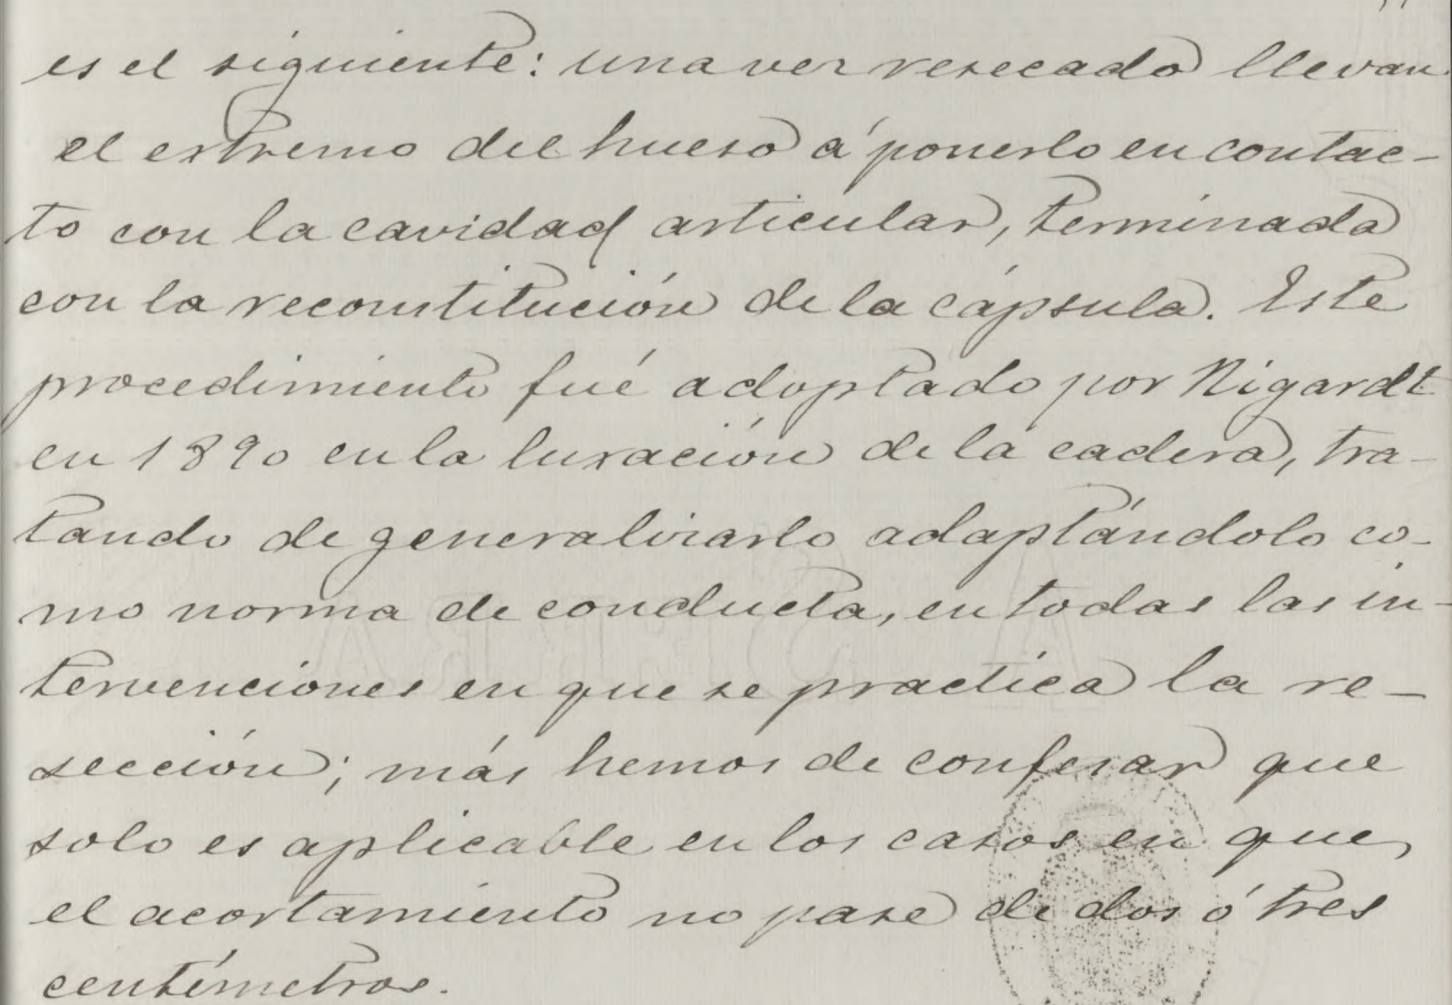 es el siguiente: una vez resecado llevan
el extremo del hueso á ponerlo en contac-
to con la cavidad articular, terminada
con la reconstitución de la cápsula. Este
procedimiento fué adoptado por Nigardt
en 1890 en la luxación de la cadera, tra-
tando de generalizarlo adaptándolo co-
mo norma de conducta, en todas las in-
tervenciones en que se practica la re-
sección; más hemos de confesar que
solo es aplicable en los casos en que,
el acortamiento no pase de dos ó tres
centímetros.